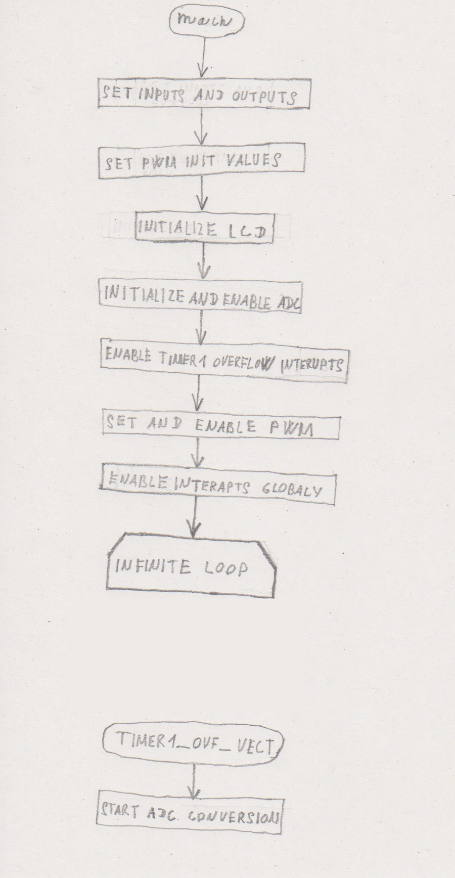 main
SET INPUTS AND OUTPUTS
SET PWM INIT VALUES
INITIALIZE LCD
INITIALIZE AND ENABLE ADC
ENABLE TIMER1 OVERFLOW INTERUPTS
SET AND ENABLE PWM
ENABLE INTERAPTS GLOBALY
INFINITE LOOP
TIMER1_OVF_VECT
START ADC CONVERSION